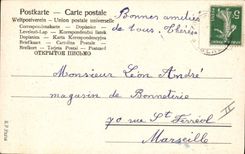 Postkarte — Carte postale
Weltpostverein — Union postale universelle
Correspondenzkarte - Dopisnice
Levelező-Lap - Korespondenční lístek
Briefkaart - Cartolina Postale
Brefkort - Karta Korespondencyjna
Brevkort - Tarjeta Postal - Dopisnica
ОТКРЫТОЕ ПИСЬМО
Bonnes amitiés
de tous. Thérèse
5
Monsieur Léon André
magasin de Bonneterie
70 rue St Ferréol
Marseille